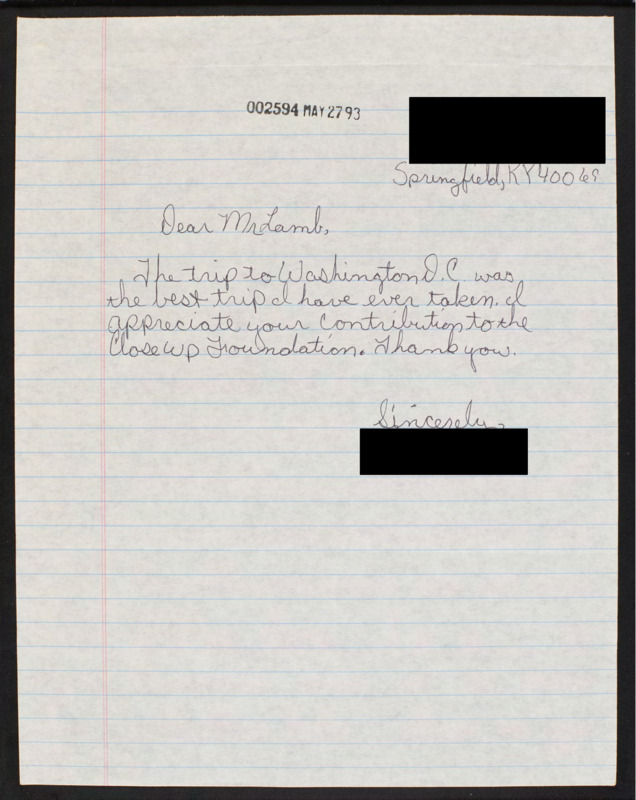 002594 MAY 27 93
Springfield, KY 40069
Dear Mr Lamb,
The trip to Washington D.C. was
the best trip I have ever taken. I
appreciate your contribution to the
Close up Foundation. Thank you.
Sincerely,